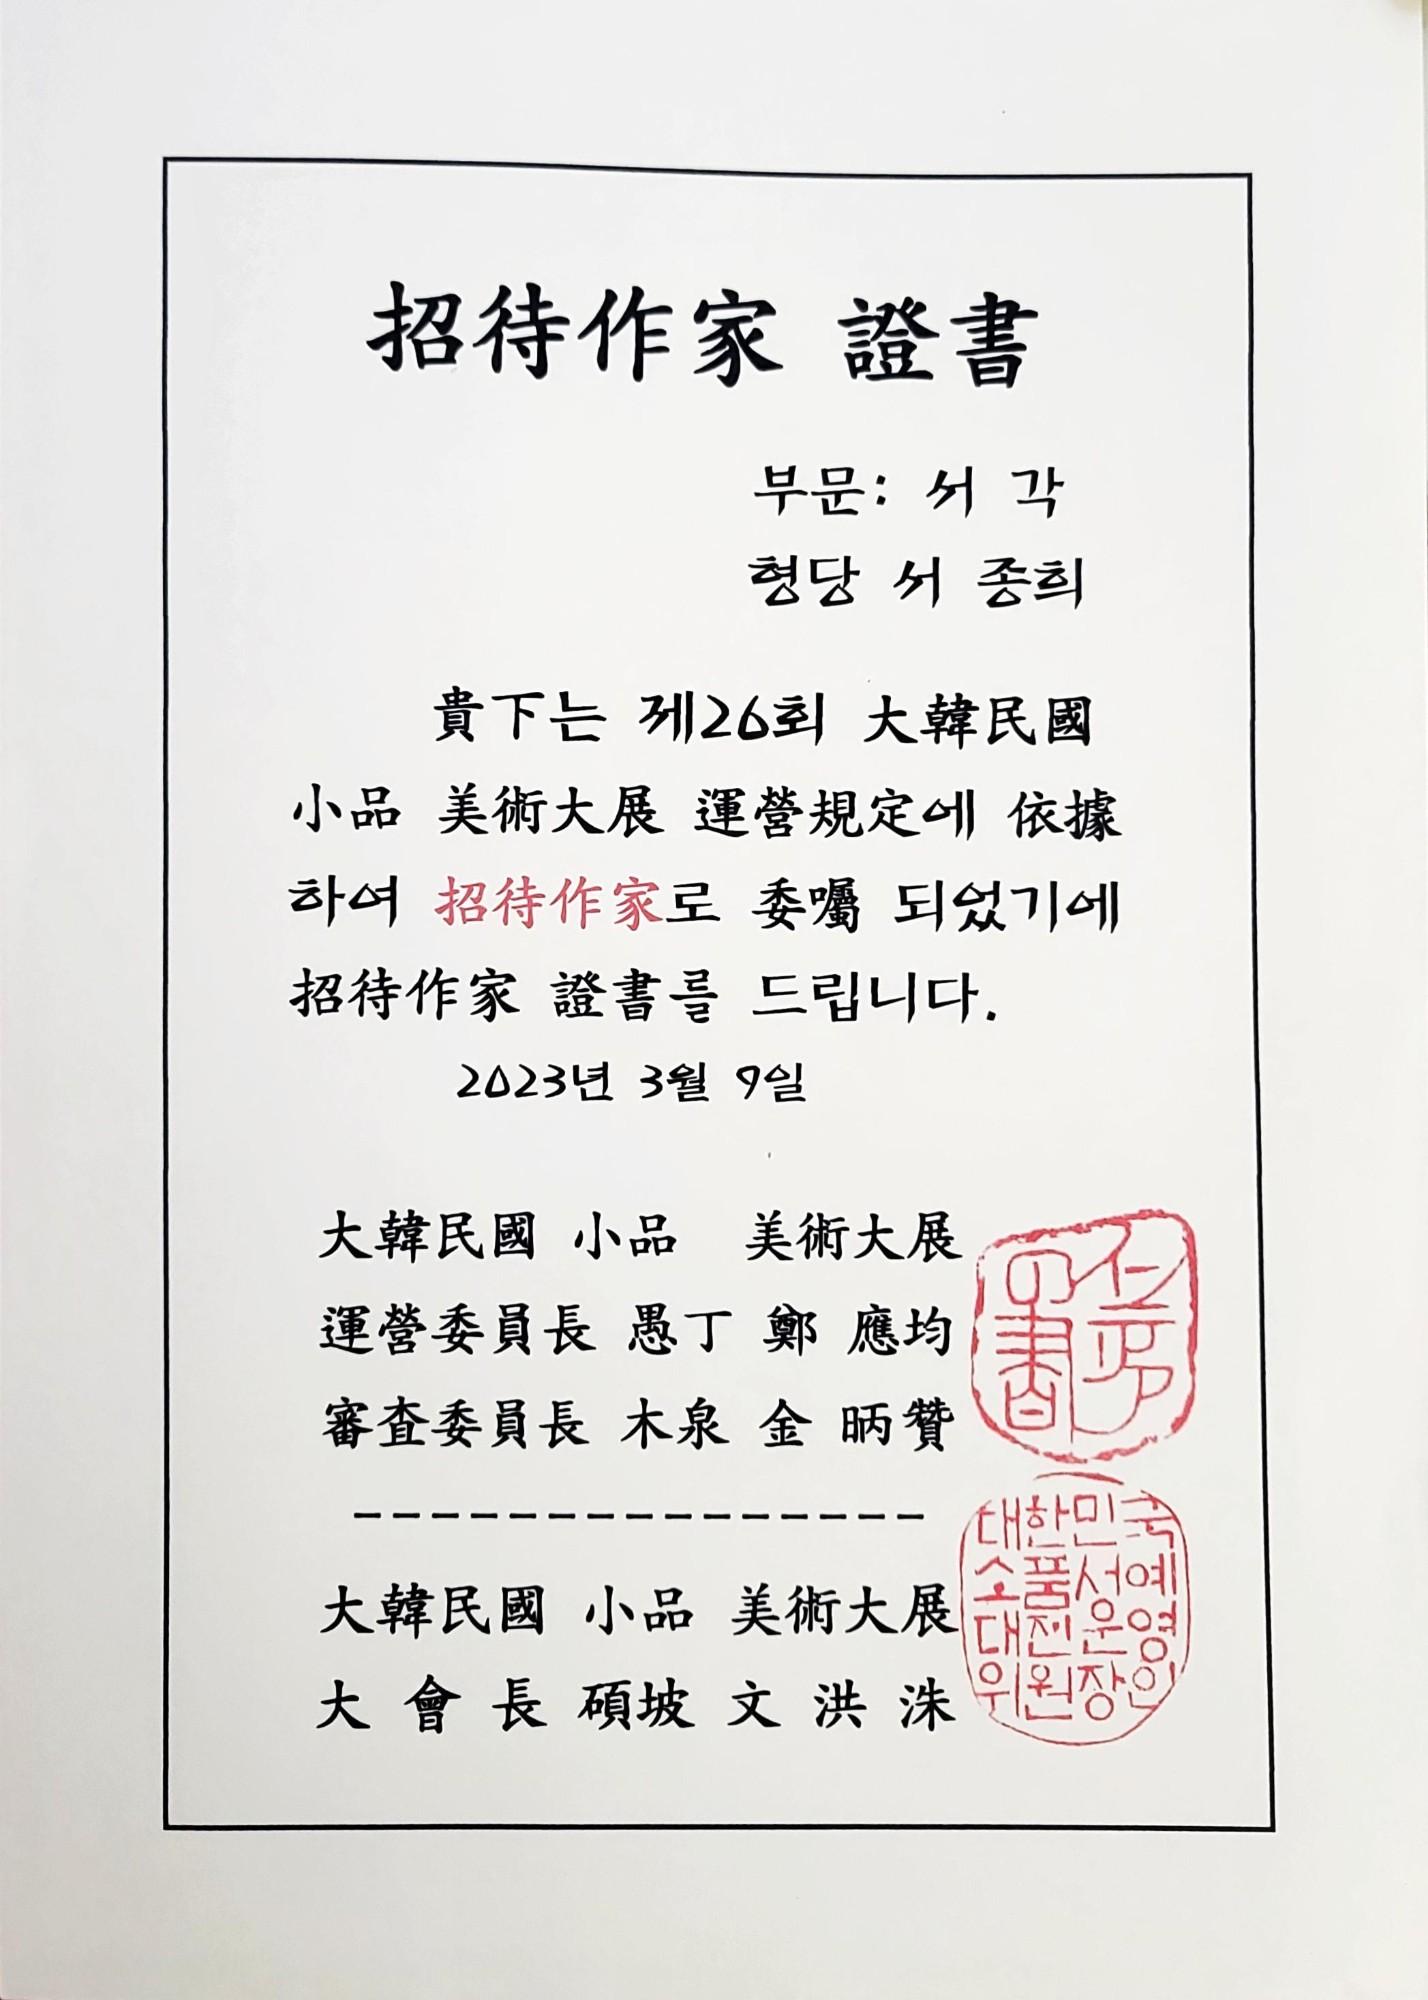 招待作家 證書
부문: 서 각
형당 서 종희
貴下는 제26회 大韓民國
小品 美術大展 運營規定에 依據
하여 招待作家로 委囑 되었기에
招待作家 證書를 드립니다.
2023년 3월 9일
大韓民國 小品 美術大展
運營委員長 愚丁 鄭 應均
審査委員長 木泉 金 昞贊
----------------
大韓民國 小品 美術大展
大 會 長 碩坡 文 洪 洙
대한민국
소품서예
대전운영
위원장인